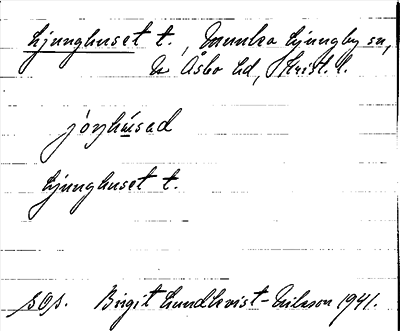 Ljunghuset t., Munka Ljungby sn,
N Åsbo hd, Krist. l.
jóŋhúsad
Ljunghuset t.
SOJ. Birgit Lundkvist-Nilsson 1941.